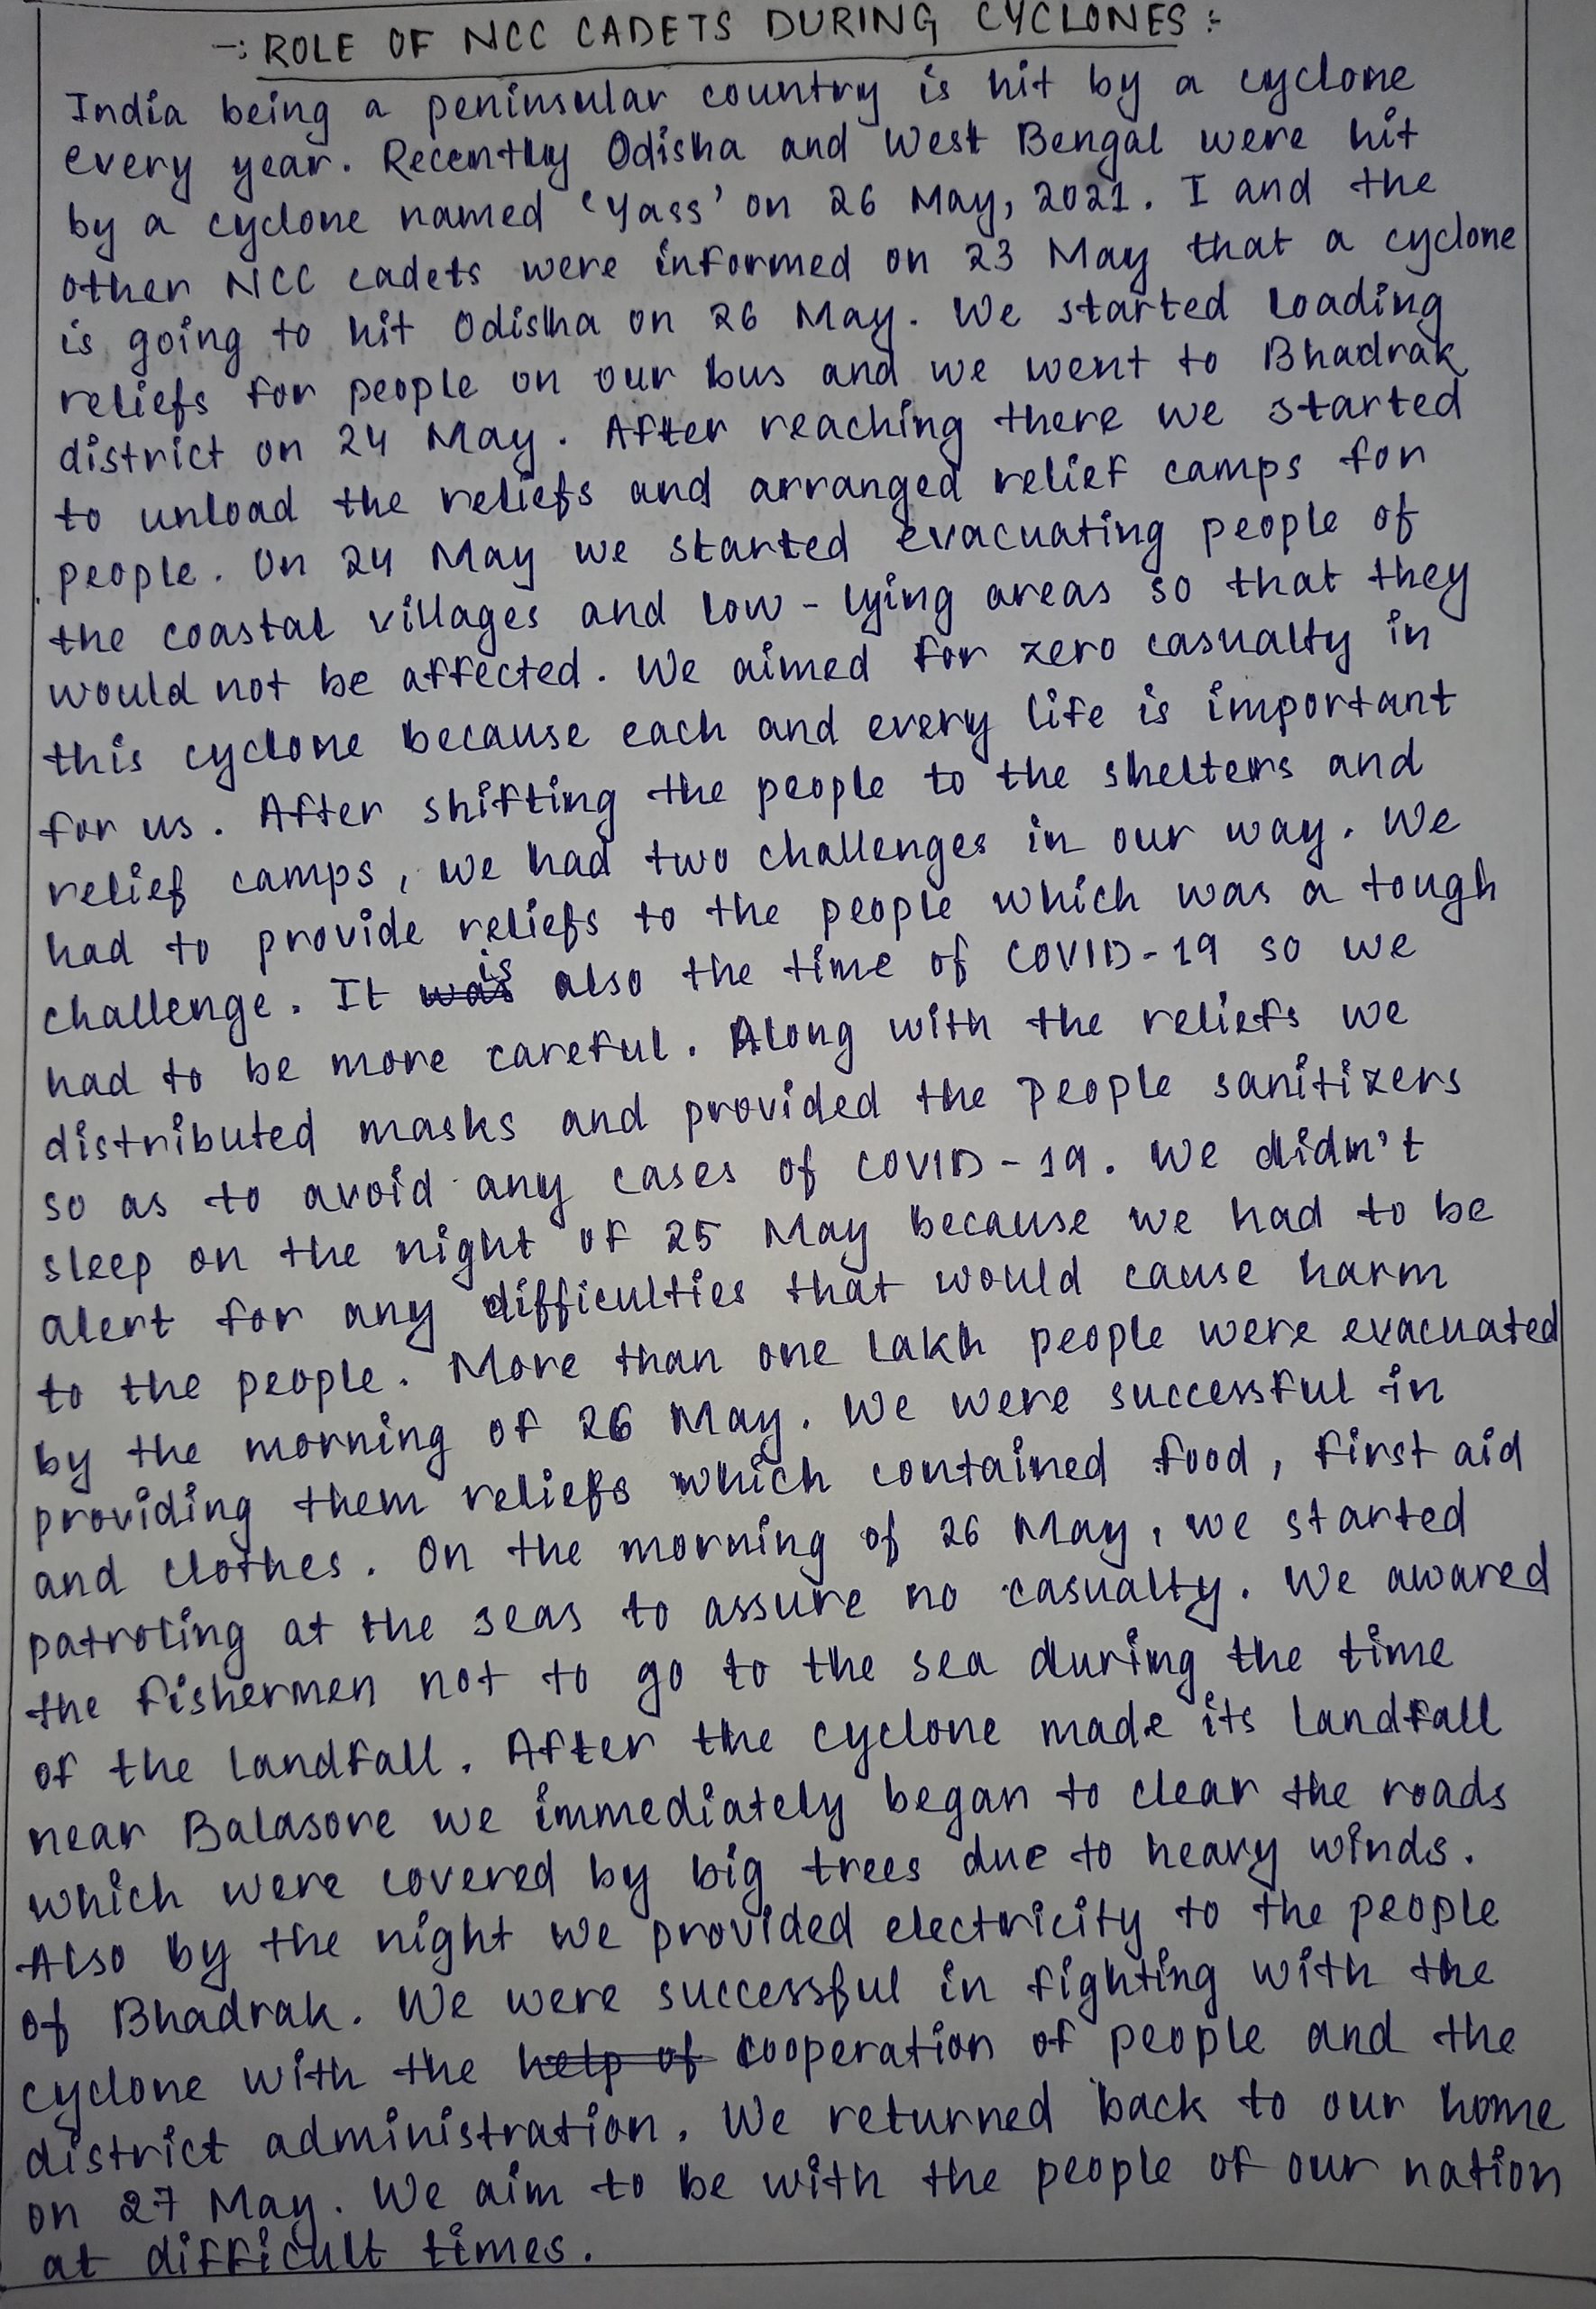 -: ROLE OF NCC CADETS DURING CYCLONES :-
India being a peninsular country is hit by a cyclone
every year. Recently Odisha and West Bengal were hit
by a cyclone named 'Yass' on 26 May, 2021. I and the
other NCC cadets were informed on 23 May that a cyclone
is going to hit Odisha on 26 May. We started loading
reliefs for people on our bus and we went to Bhadrak
district on 24 May. After reaching there we started
to unload the reliefs and arranged relief camps for
people. On 24 May we started evacuating people of
the coastal villages and low-lying areas so that they
would not be affected. We aimed for zero casualty in
this cyclone because each and every life is important
for us. After shifting the people to the shelters and
relief camps, we had two challenges in our way. We
had to provide reliefs to the people which was a tough
challenge. It was is also the time of COVID-19 so we
had to be more careful. Along with the reliefs we
distributed masks and provided the people sanitizers
so as to avoid any cases of COVID-19. We didn't
sleep on the night of 25 May because we had to be
alert for any difficulties that would cause harm
to the people. More than one lakh people were evacuated
by the morning of 26 May. We were successful in
providing them reliefs which contained food, first aid
and clothes. On the morning of 26 May, we started
patroling at the seas to assure no casualty. We awared
the fishermen not to go to the sea during the time
of the landfall. After the cyclone made its landfall
near Balasore we immediately began to clear the roads
which were covered by big trees due to heavy winds.
Also by the night we provided electricity to the people
of Bhadrak. We were successful in fighting with the
cyclone with the help of cooperation of people and the
district administration. We returned back to our home
on 27 May. We aim to be with the people of our nation
at difficult times.